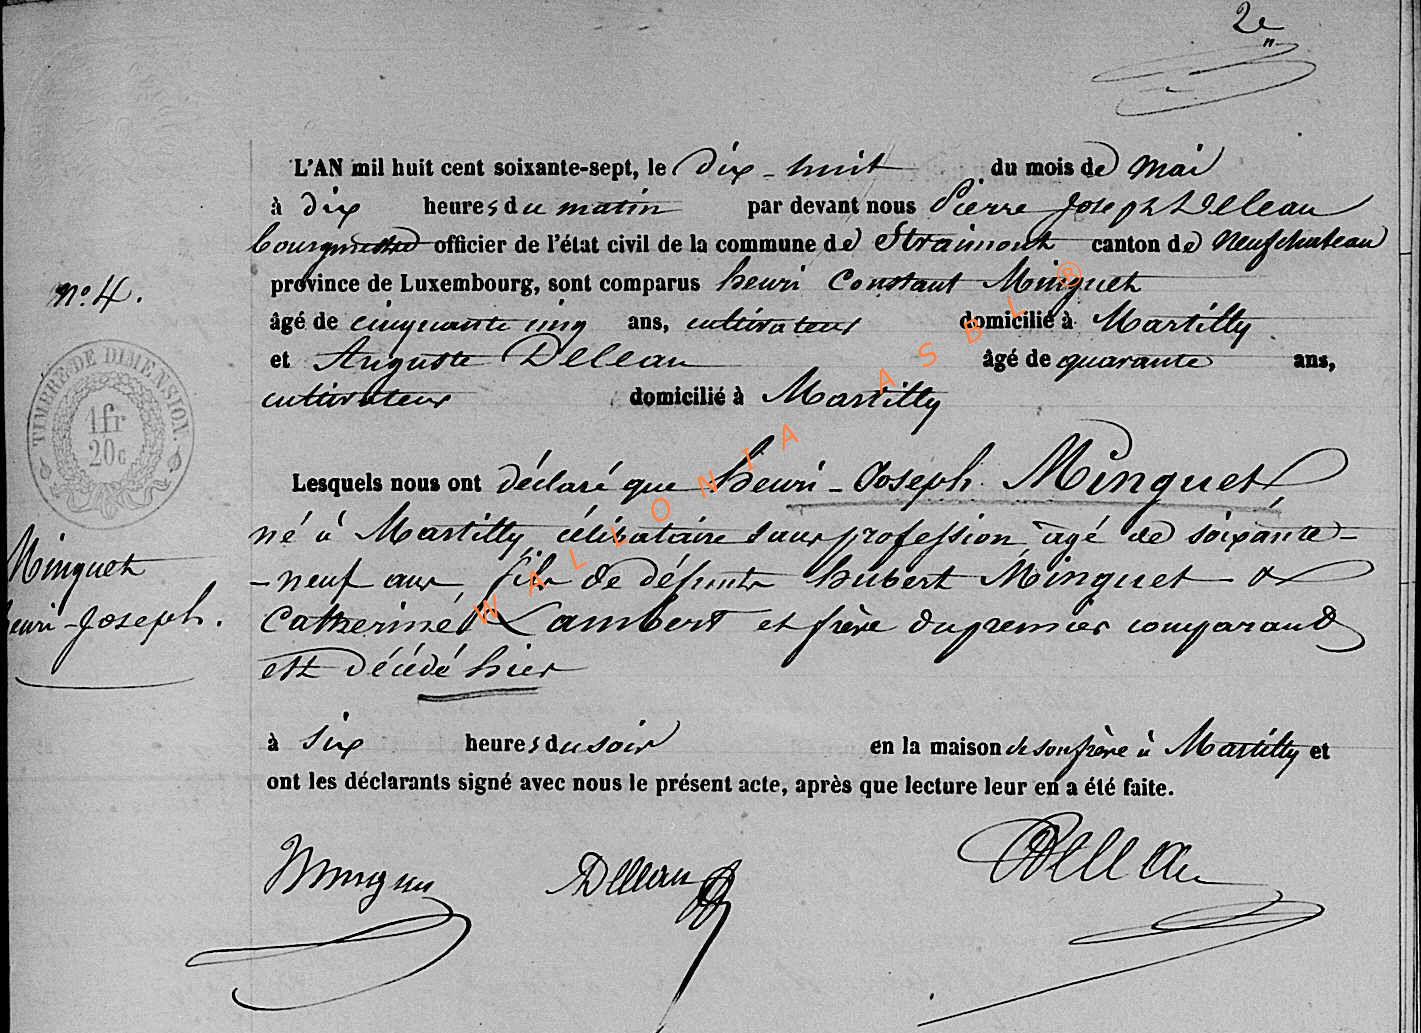 2e
L'AN mil huit cent soixante-sept, le dix-huit du mois de Mai
à dix heures du matin par devant nous Pierre Joseph Delleau
bourgmestre officier de l'état civil de la commune de Straimont canton de Neufchateau
n° 4.
province de Luxembourg, sont comparus henri Constant Minguet
âgé de cinquante cinq ans, cultivateur domicilié à Martilly
et Auguste Delleau âgé de quarante ans,
cultivateur domicilié à Martilly
TIMBRE DE DIMENSION.
1fr
20c
Lesquels nous ont déclaré que henri-Joseph Minguet
né à Martilly célibataire sans profession âgé de soixante-
-neuf ans, fils de défunts hubert Minguet &
Catherine Lambert et frère du premier comparant
est décédé hier
Minguet
henri-Joseph.
à six heures du soir en la maison de son frère à Martilly et
ont les déclarants signé avec nous le présent acte, après que lecture leur en a été faite.
Minguet Delleau Delleau
WALLONIA ASBL ®